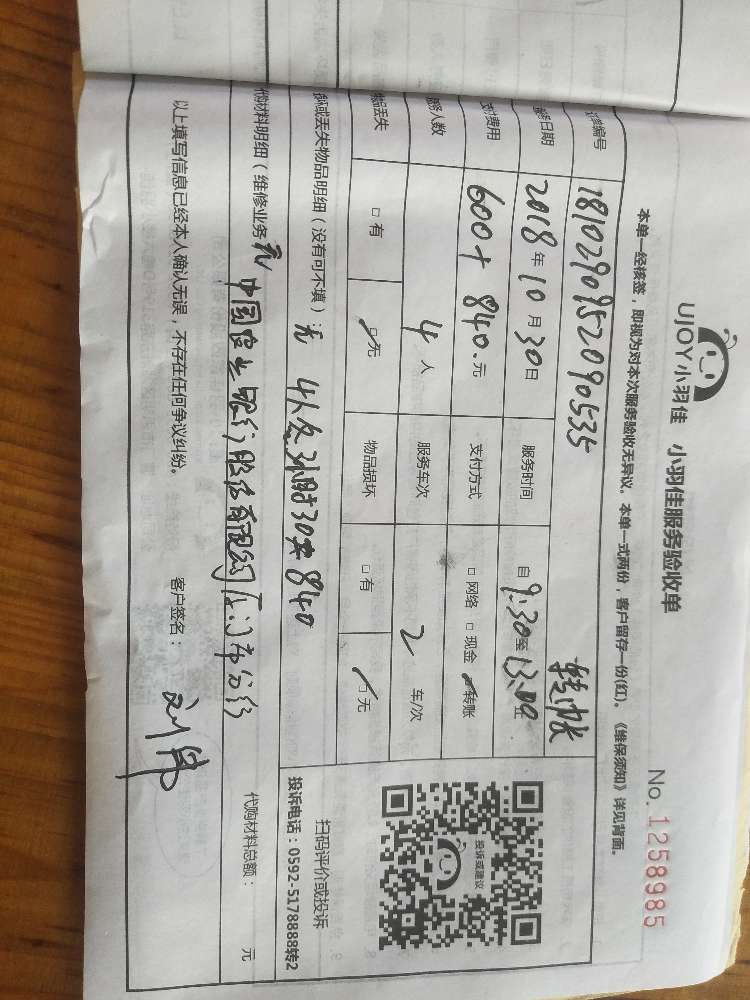 UJOY小羽佳 小羽佳服务验收单
No. 1258985
本单一经核签，即视为对本次服务验收无异议。本单一式两份，客户留存一份(红)。《维保须知》详见背面。
编号 1810290952090535 转账
日期 2018年10月30日 服务时间 自9:30至13:00止
费用 600+840.元 支付方式 □网络 □现金 ☑转账
人数 4人 服务车次 2 车/次
丢失 □有 ☑无 物品损坏 □有 ☑无
或丢失物品明细（没有可不填）：无 4人 30 840
代购材料明细（维修业务 中国 银行股份有限公司厦门市分行 代购材料总额： 元
以上填写信息已经本人确认无误，不存在任何争议纠纷。 客户签名：刘伟
投诉或建议
扫码评价或投诉
投诉电话：0592-5178888转2